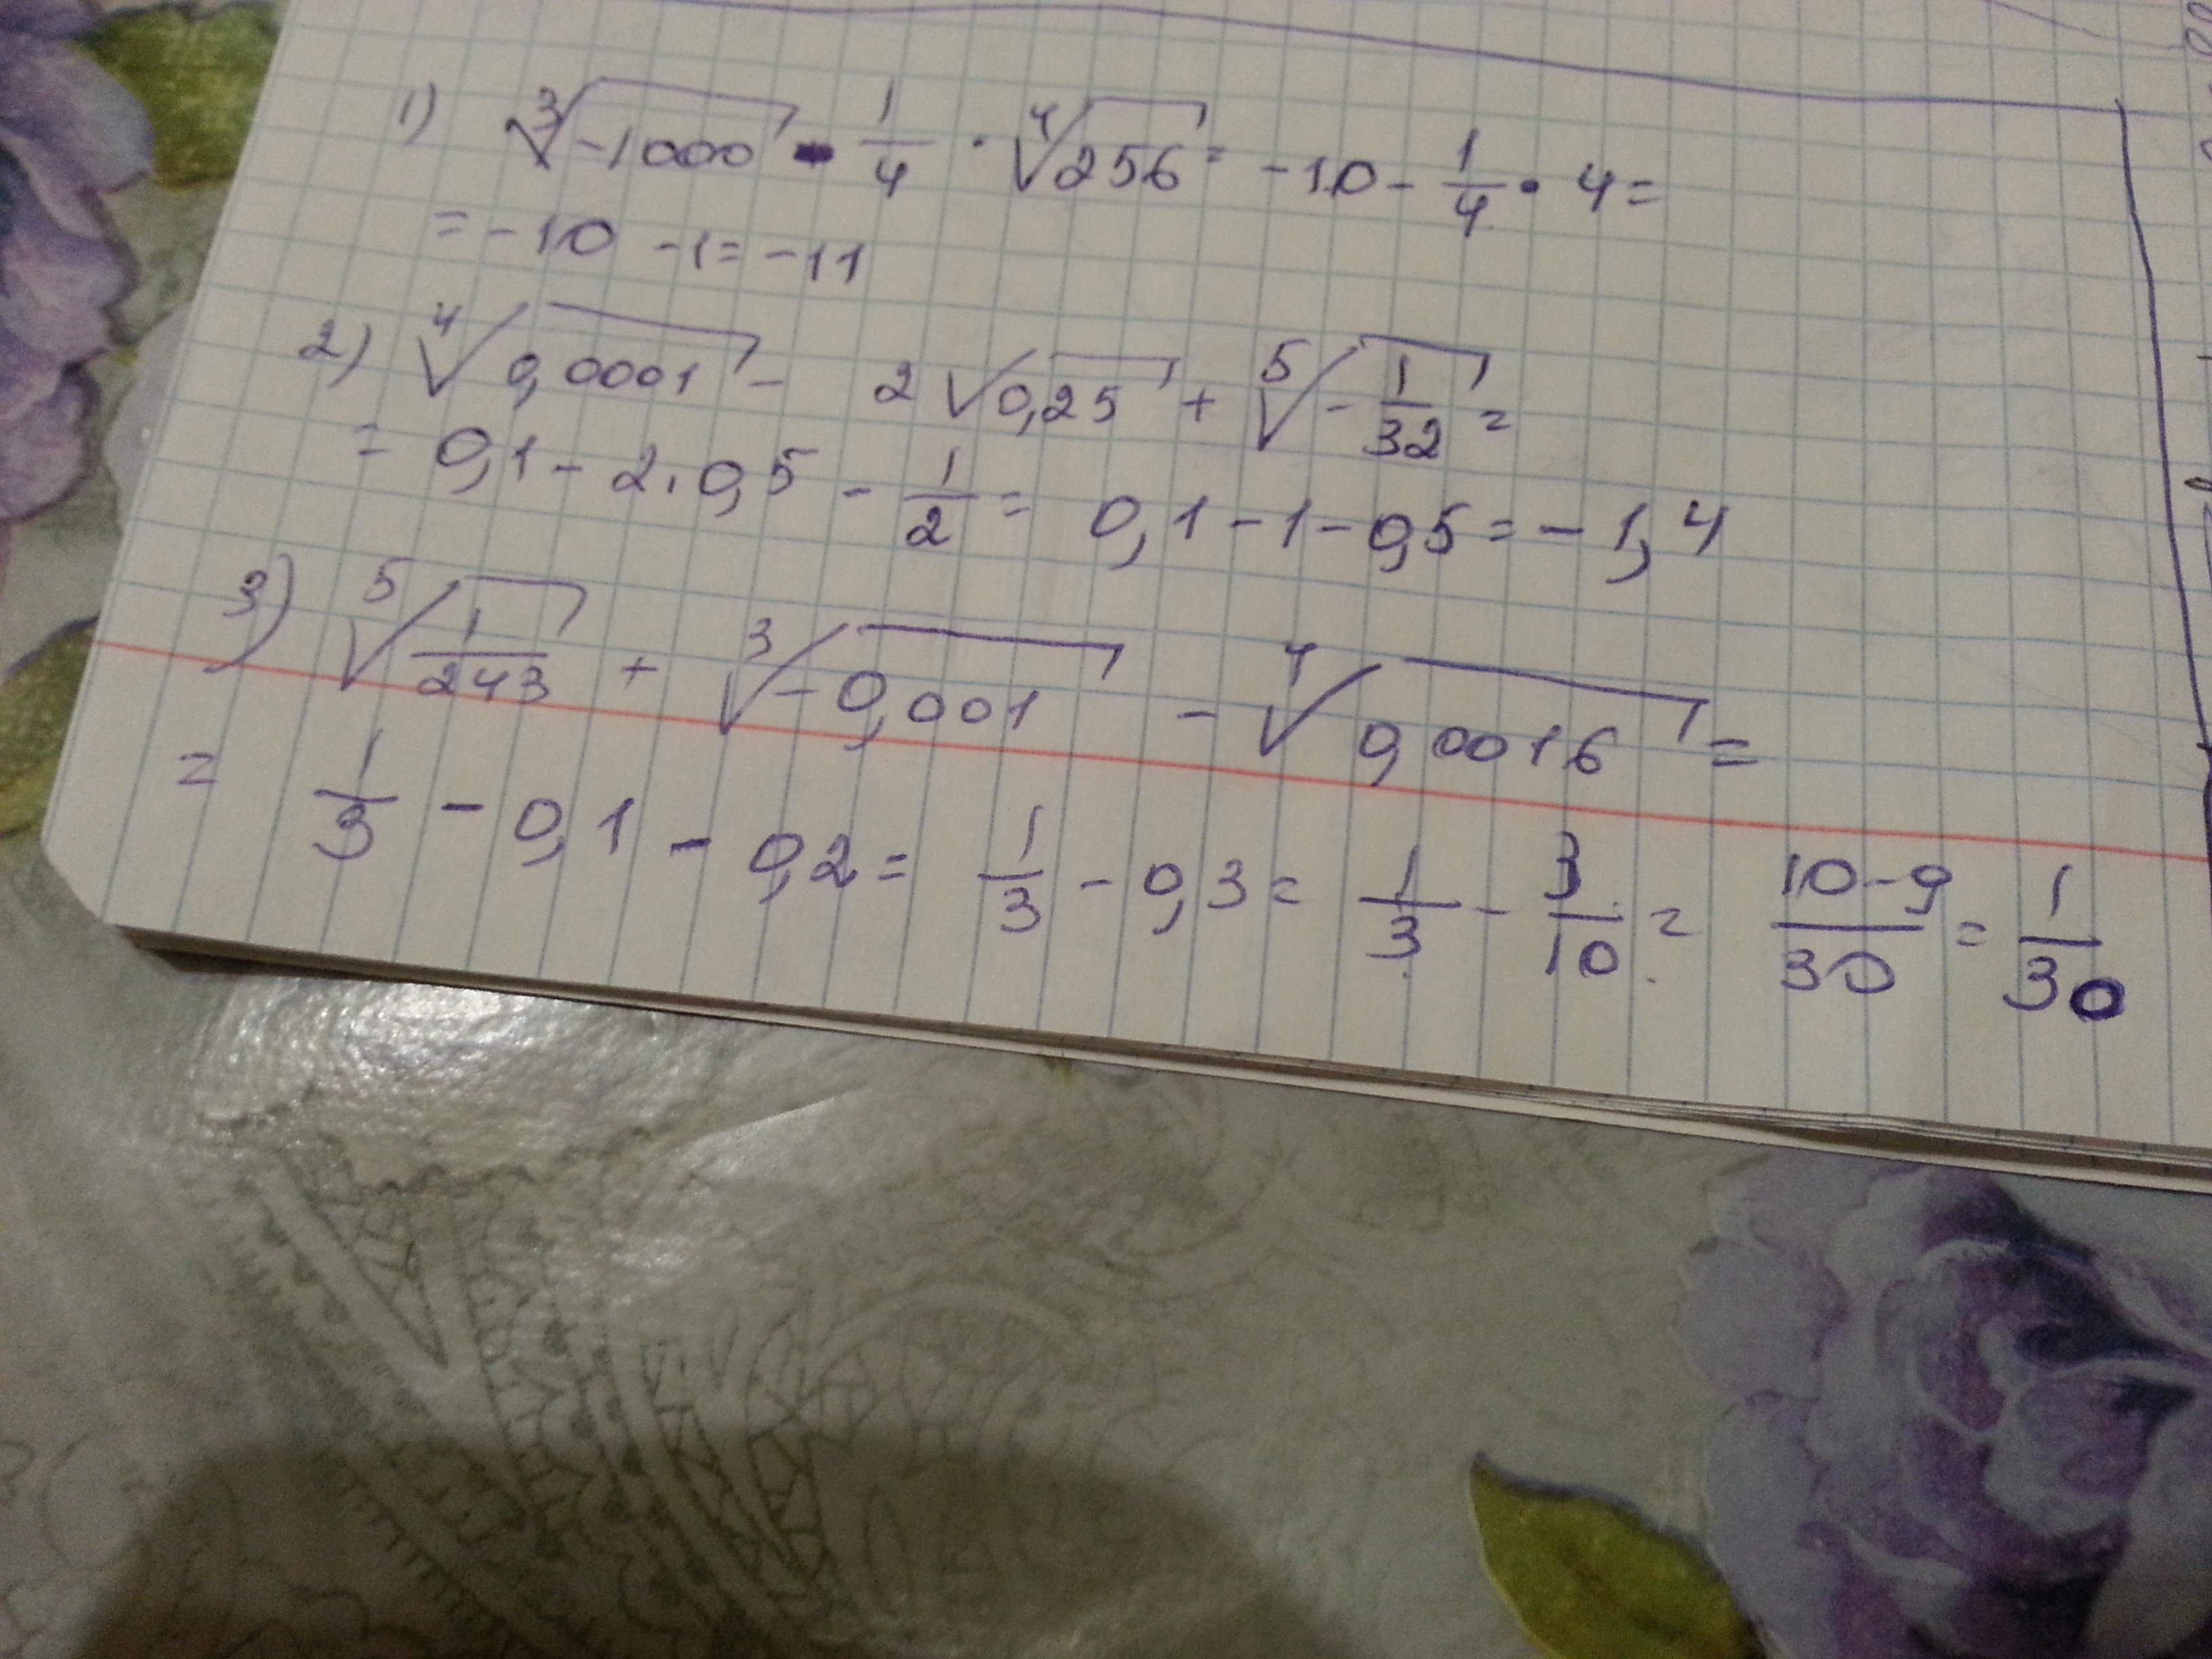 1) ∛-1000 - 1/4 · ∜256 = -10 - 1/4 · 4 =
= -10 -1 = -11
2) ∜0,0001 - 2√0,25 + ⁵√-1/32 =
= 0,1 - 2·0,5 - 1/2 = 0,1 - 1 - 0,5 = -1,4
3) ⁵√1/243 + ∛-0,001 - ∜0,0016 =
= 1/3 - 0,1 - 0,2 = 1/3 - 0,3 = 1/3 - 3/10 = 10-9/30 = 1/30